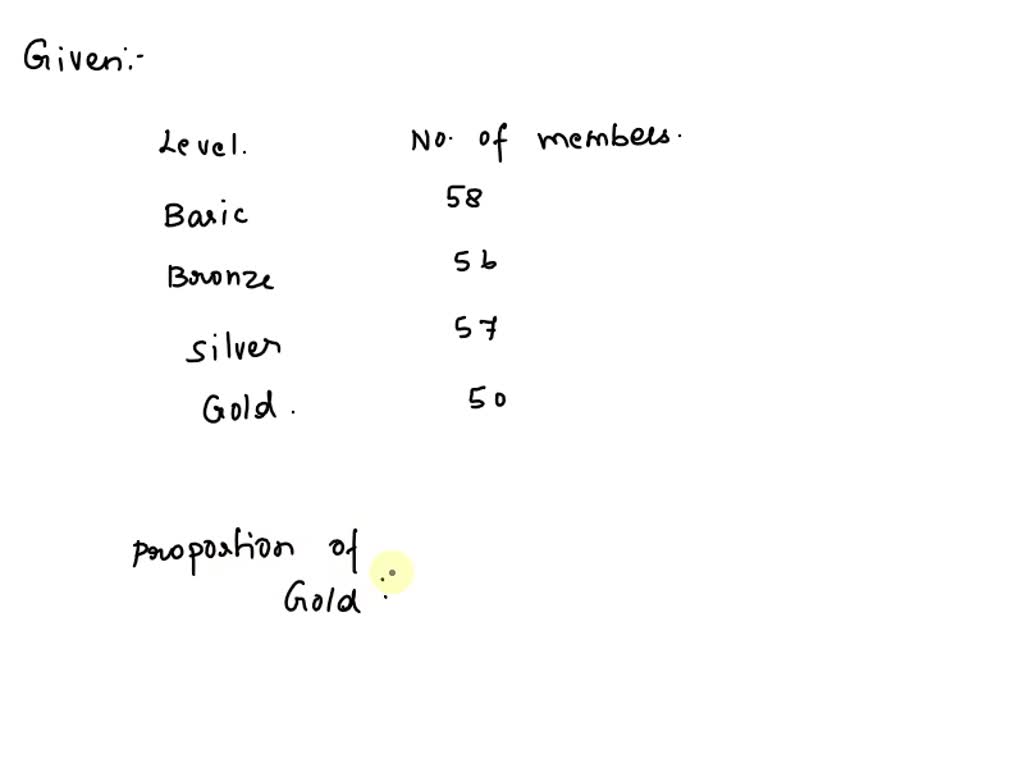 Given:-
Level. No. of members.
Basic 58
Bronze 56
Silver 57
Gold. 50
proportion of
Gold :